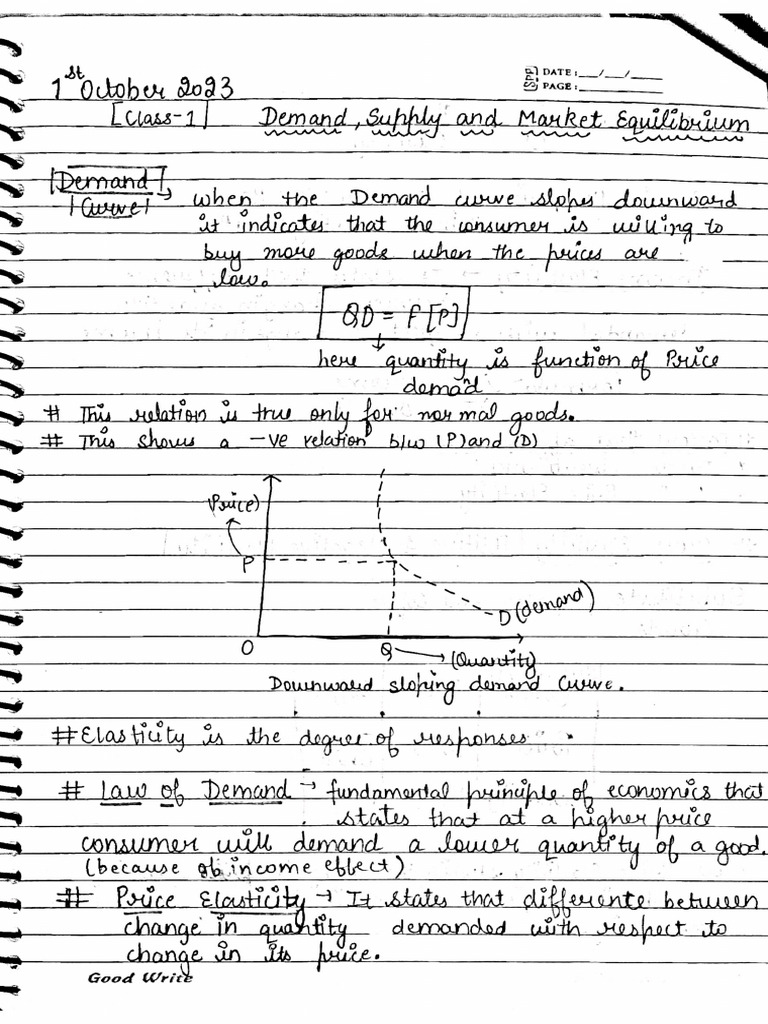 1st October 2023
SPP DATE: __/__/__
PAGE: ______
[Class-1] Demand, Supply and Market Equilibrium
Demand
Curve → when the Demand curve slopes downward
it indicates that the consumer is willing to
buy more goods when the prices are
low.
QD = F [P]
here quantity is function of Price
demad
# This relation is true only for normal goods.
# This shows a -ve relation b/w (P) and (D)
(Price)
P
D (demand)
O Q → (Quantity)
Downward sloping demand curve.
# Elasticity is the degree of responses
# Law of Demand → fundamental principle of economics that
states that at a higher price
consumer will demand a lower quantity of a good.
(because of income effect)
# Price Elasticity → It states that differente between
change in quantity demanded with respect to
change in its price.
Good Write